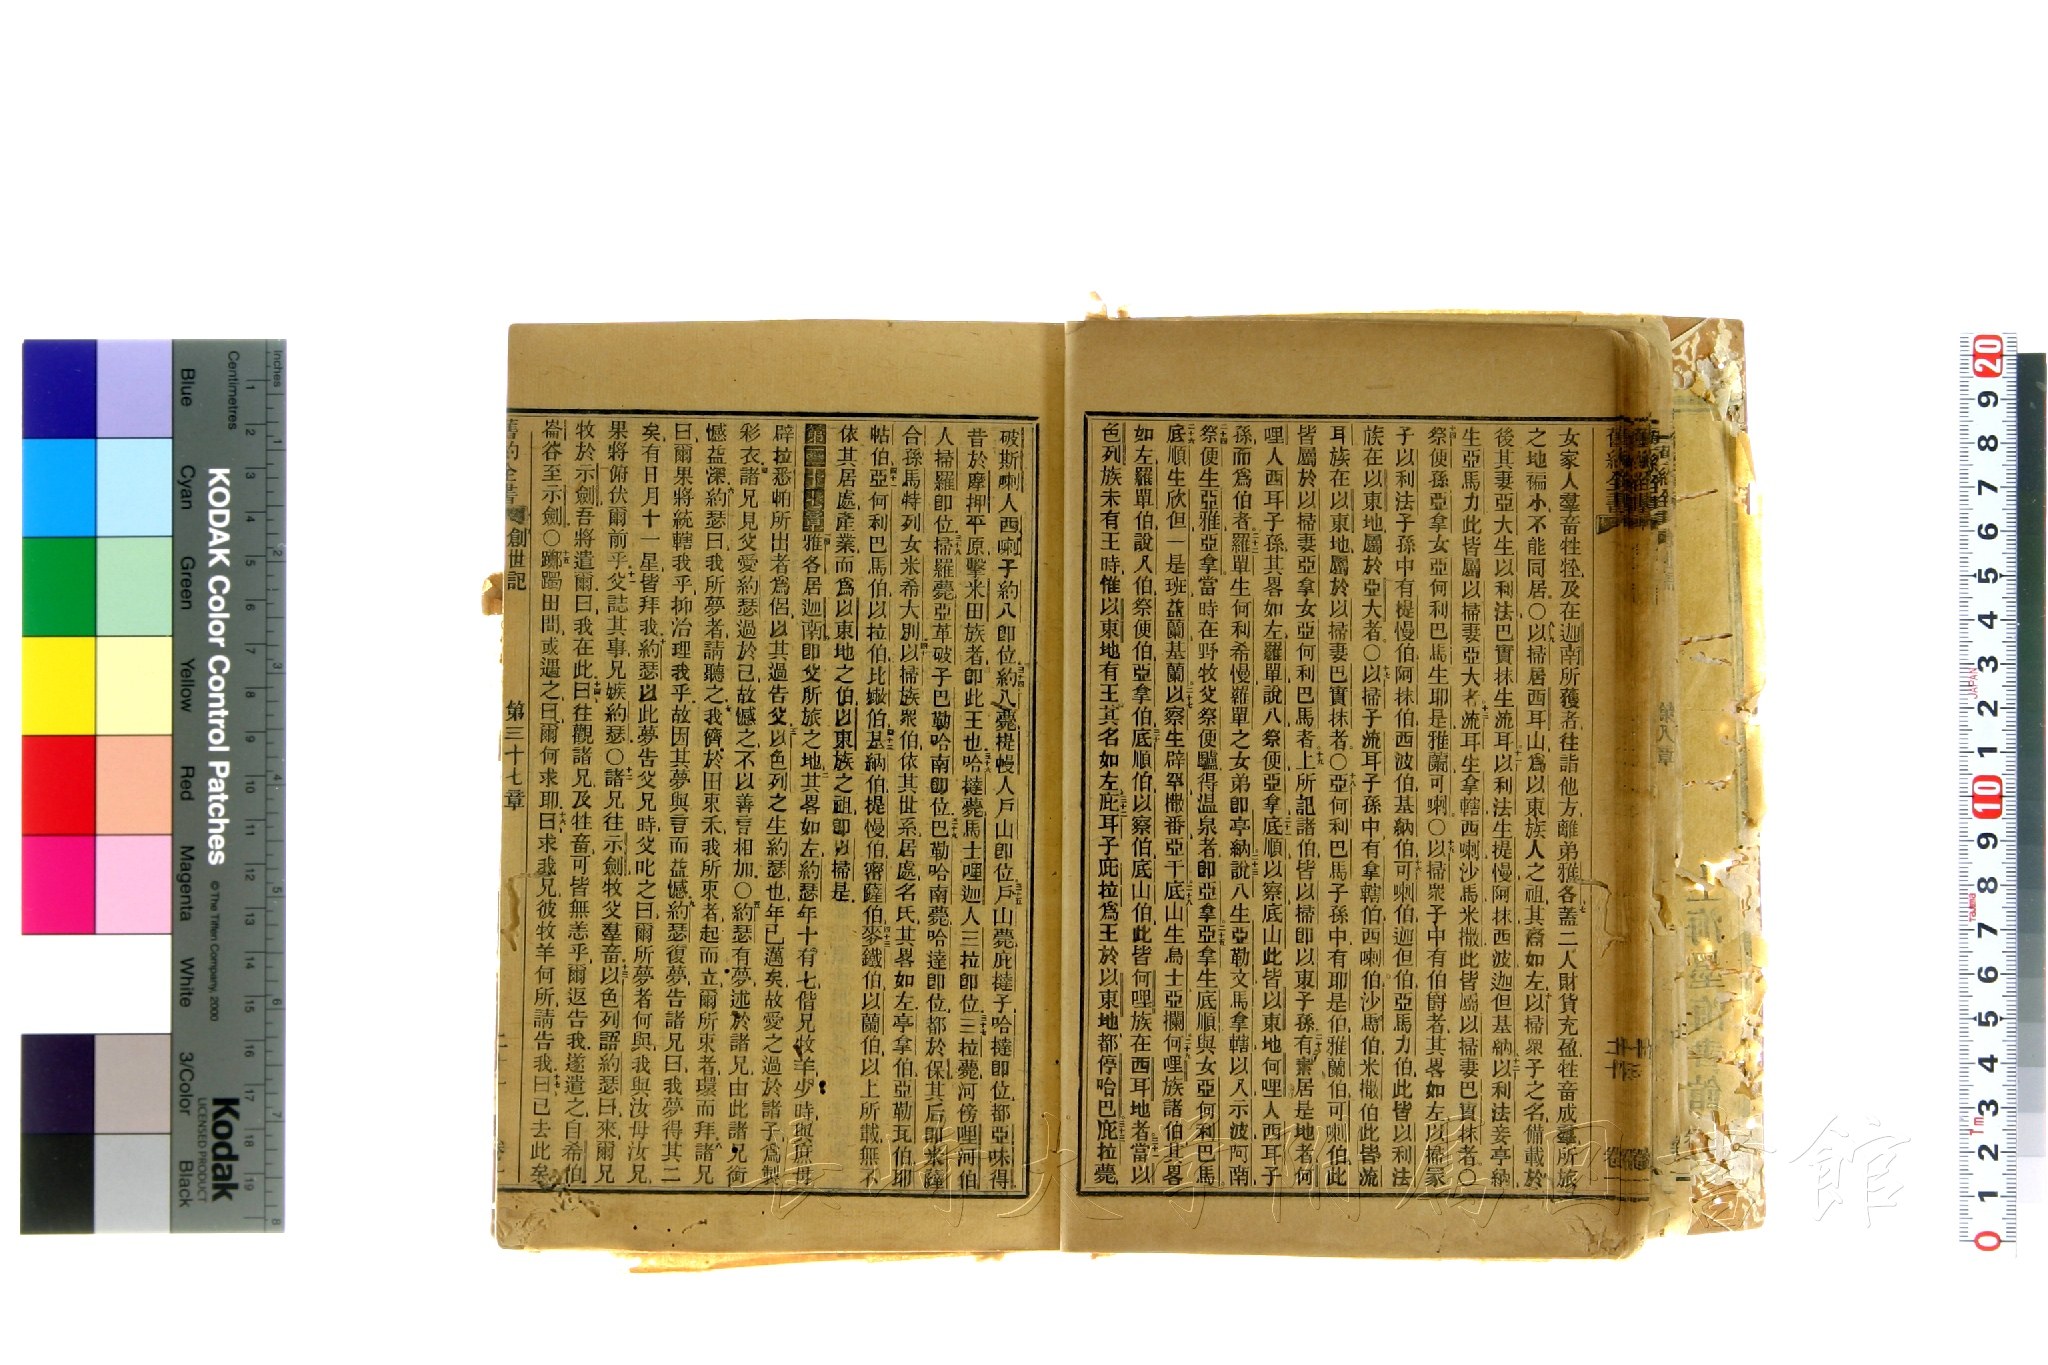 女家人羣畜牲牷及在迦南所獲者往詣他方離弟雅各蓋二人財貨充盈牲畜成羣所旅
之地褊小不能同居○以掃居西耳山爲以東族人之祖其裔如左以掃衆子之名備載於
後其妻亞大生以利法巴實抹生流耳以利法生提慢阿抹西波迦但基納以利法妾亭納
生亞馬力此皆屬以掃妻亞大者流耳生拿轄西喇沙馬米撒此皆屬以掃妻巴實抹者○
祭便孫亞拿女亞何利巴馬生耶是雅蘭可喇○以掃衆子中有伯爵者其畧如左以掃冢
子以利法子孫中有提慢伯阿抹伯西波伯基納伯可喇伯迦但伯亞馬力伯此皆以利法
族在以東地屬於亞大者○以掃子流耳子孫中有拿轄伯西喇伯沙馬伯米撒伯此皆流
耳族在以東地屬於以掃妻巴實抹者○亞何利巴馬子孫中有耶是伯雅蘭伯可喇伯此
皆屬於以掃妻亞拿女亞何利巴馬者上所記諸伯皆以掃即以東子孫有素居是地者何
哩人西耳子孫其畧如左羅單說八祭便亞拿底順以察底山此皆以東地何哩人西耳子
孫而爲伯者羅單生何利希慢羅單之女弟即亭納說八生亞勒文馬拿轄以八示波阿南
祭便生亞雅亞拿當時在野牧父祭便驢得温泉者即亞拿亞拿生底順與女亞何利巴馬
底順生欣但一是班益蘭基蘭以察生辟罕撒番亞干底山生烏士亞攔何哩族諸伯其畧
如左羅單伯說八伯祭便伯亞拿伯底順伯以察伯底山伯此皆何哩族在西耳地者當以
色列族未有王時惟以東地有王其名如左庇耳子庇拉爲王於以東地都停哈巴庇拉薨
破斯喇人西喇子約八即位約八薨提幔人戶山即位戶山薨庇撻子哈撻即位都亞味得
昔於摩押平原擊米田族者即此王也哈撻薨馬士哩迦人三拉即位三拉薨河傍哩河伯
人掃羅即位掃羅薨亞革破子巴勒哈南即位巴勒哈南薨哈達即位都於保其后即米薩
合孫馬特列女米希大別以掃族衆伯依其世系居處名氏其畧如左亭拿伯亞勒瓦伯耶
帖伯亞何利巴馬伯以拉伯比嫩伯基納伯提慢伯密薩伯麥鐵伯以蘭伯以上所載無不
依其居處產業而爲以東地之伯以東族之祖即以掃是
第三十七章雅各居迦南即父所旅之地其畧如左約瑟年十有七偕兄牧羊少時與庶母
辟拉悉帕所出者爲侶以其過告父以色列之生約瑟也年已邁矣故愛之過於諸子爲製
彩衣諸兄見父愛約瑟過於己故憾之不以善言相加○約瑟有夢述於諸兄由此諸兄銜
憾益深約瑟曰我所夢者請聽之我儕於田束禾我所束者起而立爾所束者環而拜諸兄
曰爾果將統轄我乎抑治理我乎故因其夢與言而益憾約瑟復夢告諸兄曰我夢得其二
矣有日月十一星皆拜我約瑟以此夢告父兄時父叱之曰爾所夢者何與我與汝母汝兄
果將俯伏爾前乎父誌其事兄嫉約瑟○諸兄往示劍牧父羣畜以色列語約瑟曰來爾兄
牧於示劍吾將遣爾曰我在此曰往觀諸兄及牲畜可皆無恙乎爾返告我遂遣之自希伯
崙谷至示劍○躑躅田間或遇之曰爾何求耶曰求我兄彼牧羊何所請告我曰已去此矣
舊約全書 創世記 第三十七章
KODAK Color Control Patches
© The Tiffen Company, 2000
Kodak
LICENSED PRODUCT
Inches
Centimetres
Blue Cyan Green Yellow Red Magenta White 3/Color Black
JAPAN
長崎大学附属図書館